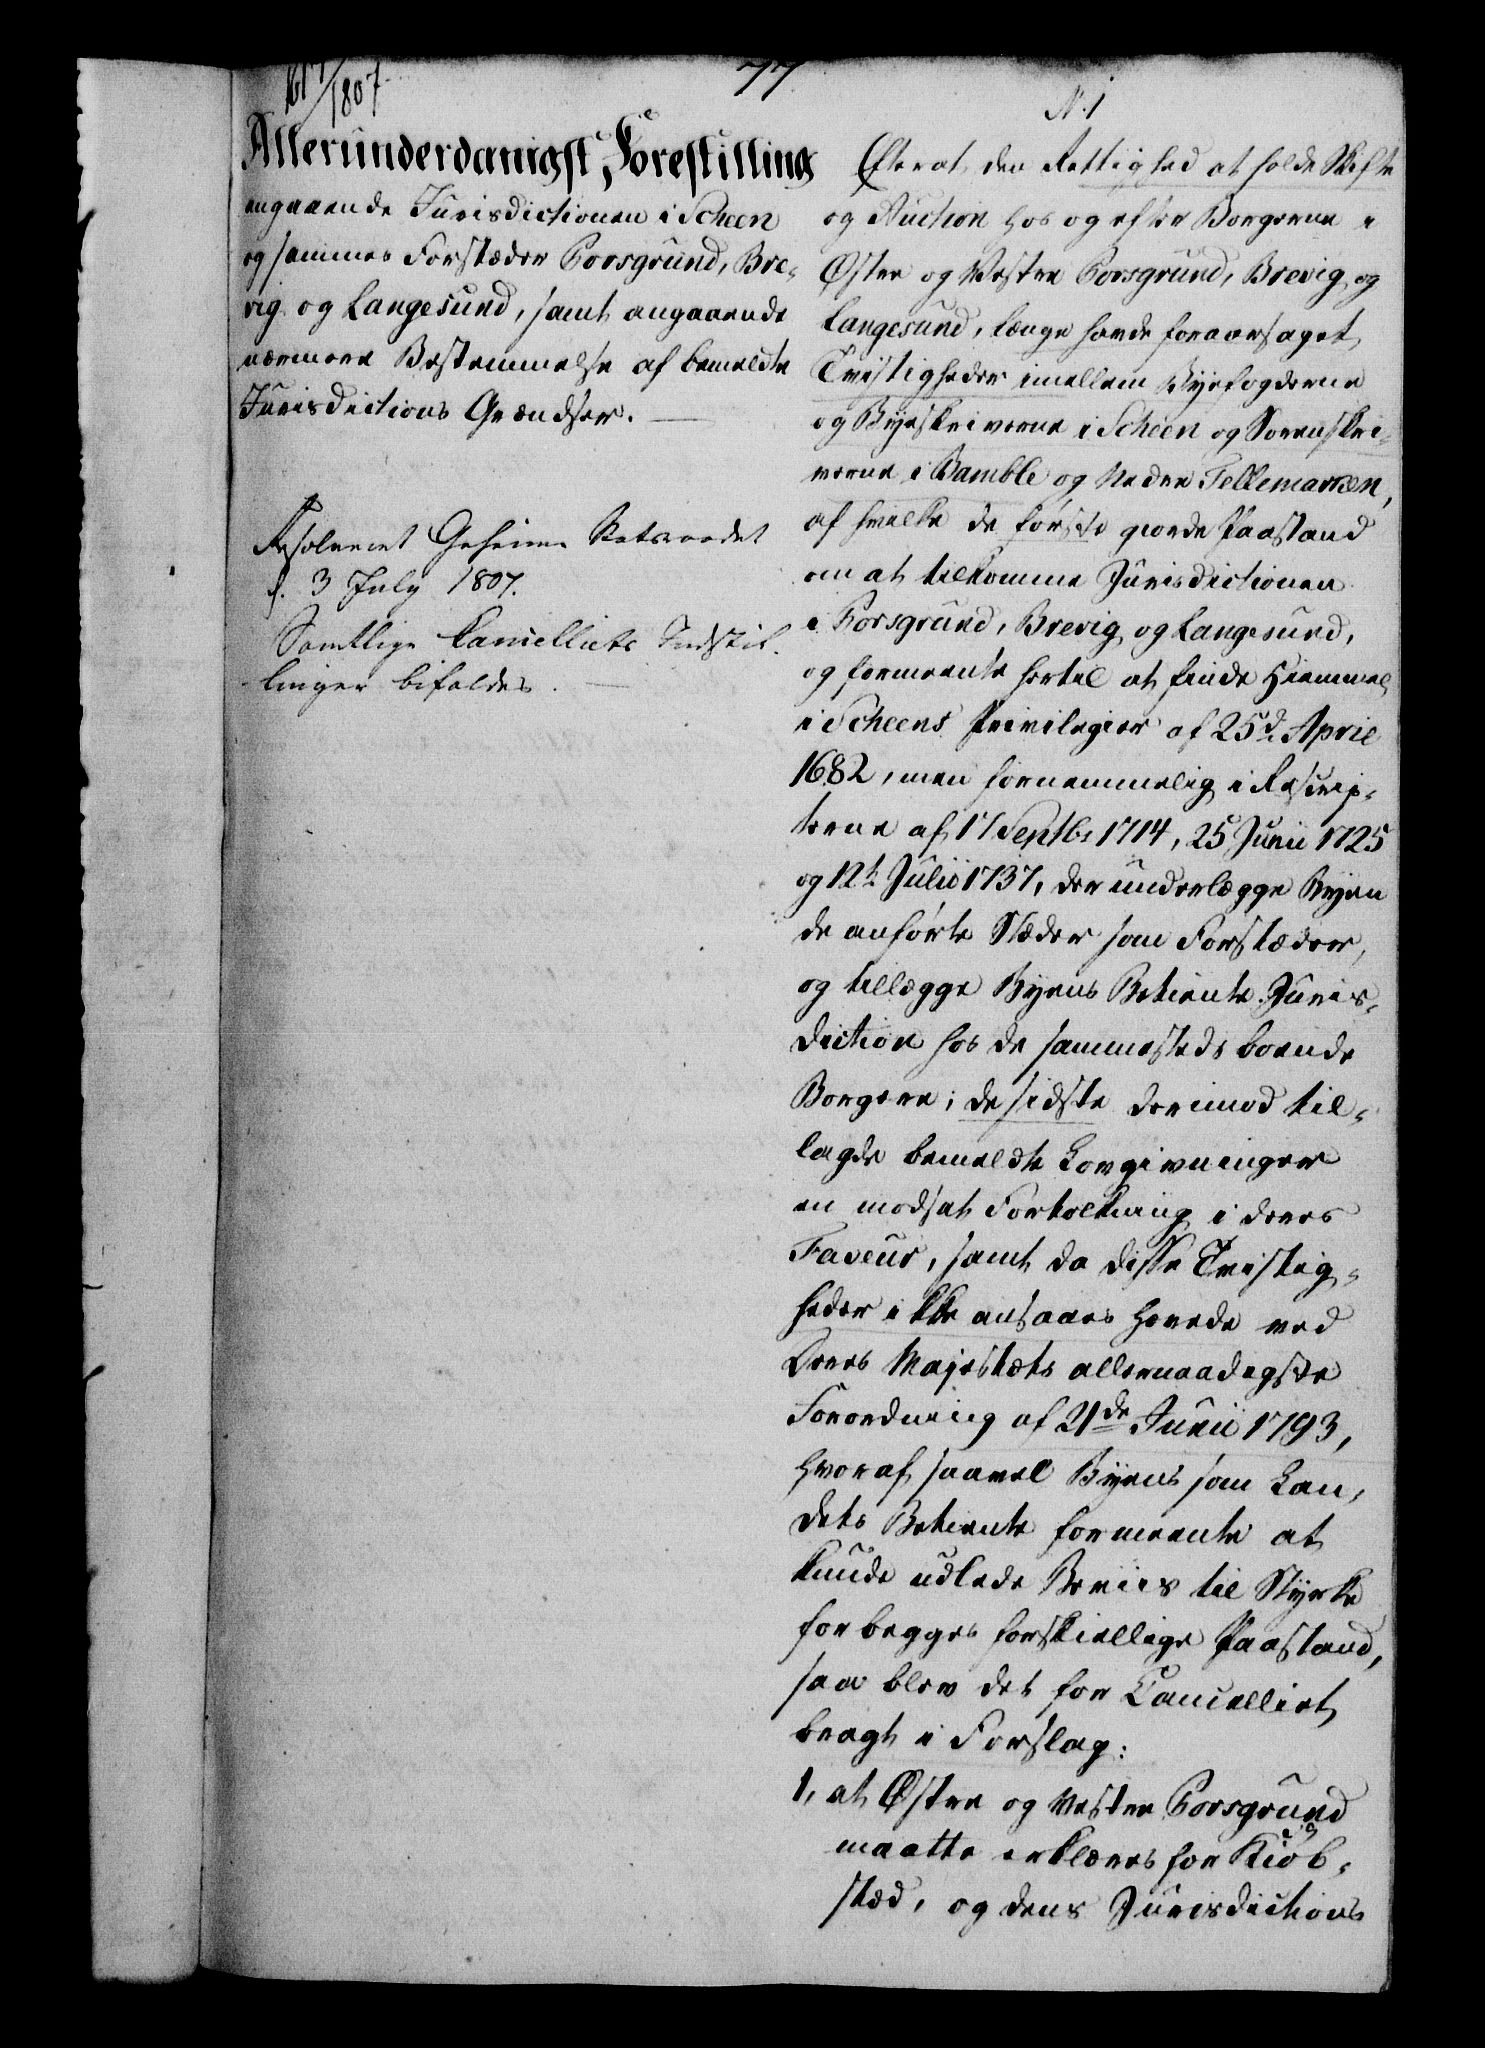 617/1807
77
N. 1
Allerunderdanigst Forestilling
angaaende Jurisdictionen i Scheen
og sammes Forstæder Porsgrund, Bre-
vig og Langesund, samt angaaende
nærmere Bestemmelse af bemeldte
Jurisdictions Grændser.
Resolveret Geheime Statsraadet
d. 3 July 1807.
Samtlige Cancelliets Indstil-
linger bifaldes.
Efterat den Rettighed at holde Skifte
og Auction hos og efter Borgerne i
Østre og Vestre Porsgrund, Brevig og
Langesund, længe havde foraarsaget
Tvistigheder imellem Byefogderne
og Byeskriverne i Scheen og Sorenskri-
verne i Bamble og Nedre Tellemarken,
af hvilke de første giorde Paastand
om at tilkomme Jurisdictionen
i Porsgrund, Brevig og Langesund,
og formeente hertil at finde Hiemmel
i Scheens Privilegier af 25d April
1682, men fornemmelig i Rescrip-
terne af 17 Septbr 1714, 25 Junii 1725
og 12te Julii 1737, der underlægge Byen
de anførte Stæder som Forstæder,
og tillægge Byens Betiente Juris-
diction hos de sammesteds boende
Borgere; de sidste derimod til-
lagde bemeldte Lovgivninger
en modsat Fortolkning i deres
Faveur, samt da disse Tvistig-
heder ikke ansaaes hævede ved
Deres Majestæts allernaadigste
Forordning af 21de Junii 1793,
hvoraf saavel Byens som Lan-
dets Betiente formeente at
kunde udlede Beviis til Styrke
for begges forskiellige Paastand,
saa blev det for Cancelliet
bragt i Forslag:
1, at Østre og Vestre Porsgrund
maatte erklæres for Kiøb-
stæd, og dens Jurisdictions